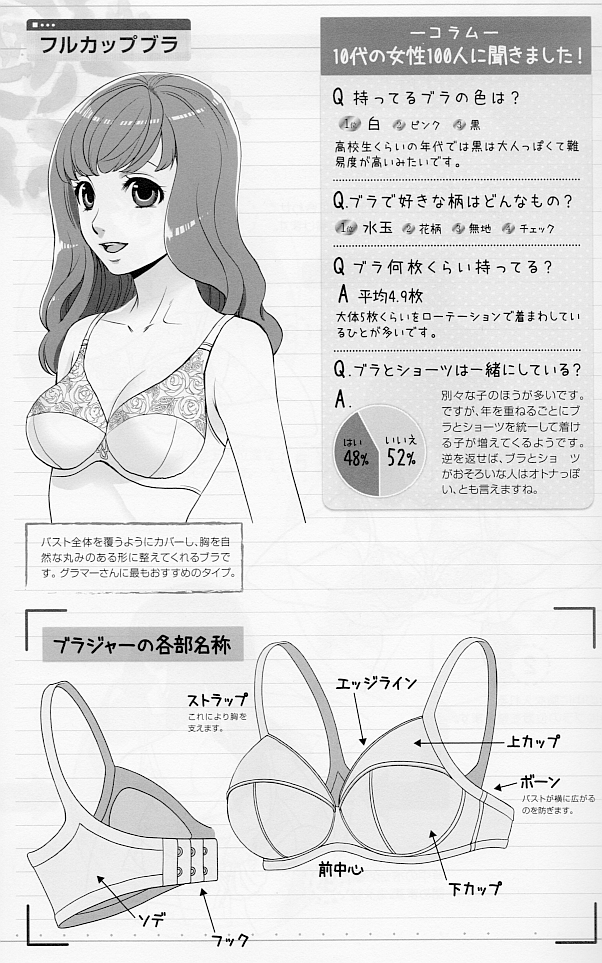 フルカップブラ
ーコラムー
10代の女性100人に聞きました!
Q 持ってるブラの色は?
1位 白 2位 ピンク 3位 黒
高校生くらいの年代では黒は大人っぽくて難
易度が高いみたいです。
Q.ブラで好きな柄はどんなもの?
1位 水玉 2位 花柄 3位 無地 4位 チェック
Q ブラ何枚くらい持ってる?
A 平均4.9枚
大体5枚くらいをローテーションで着まわしてい
るひとが多いです。
Q.ブラとショーツは一緒にしている?
A.
はい
48%
いいえ
52%
別々な子のほうが多いです。
ですが、年を重ねるごとにブ
ラとショーツを統一して着け
る子が増えてくるようです。
逆を返せば、ブラとショーツ
がおそろいな人はオトナっぽ
い、とも言えますね。
バスト全体を覆うようにカバーし、胸を自
然な丸みのある形に整えてくれるブラで
す。グラマーさんに最もおすすめのタイプ。
ブラジャーの各部名称
ストラップ
これにより胸を
支えます。
エッジライン
上カップ
ボーン
バストが横に広がる
のを防ぎます。
前中心
下カップ
ソデ
フック